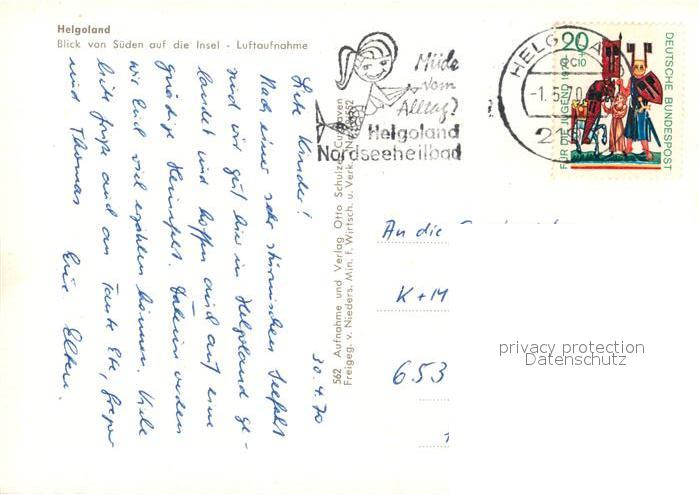 Helgoland
Blick von Süden auf die Insel - Luftaufnahme
Müde
vom
Alltag?
Helgoland
Nordseeheilbad
HELGOLA
-1.5.70
219
20
+10
FÜR DIE JUGEND 1970
DEUTSCHE BUNDESPOST
30.4.70
Liebe Kinder!
Nach einer sehr stürmischen Seefahrt
sind wir gut hier in Helgoland ge-
landet und hoffen auch auf eine
gnädige Heimfahrt. Daheim werden
wir Euch viel erzählen können. Viele
liebe Grüße auch an Tante Ete,
und Thomas Eure Eltern.
562 Aufnahme und Verlag Otto Schulze, Cuxhaven
Freigeg. v. Nieders. Min. f. Wirtsch. u. Verk.
An die
K + M
653
privacy protection
Datenschutz